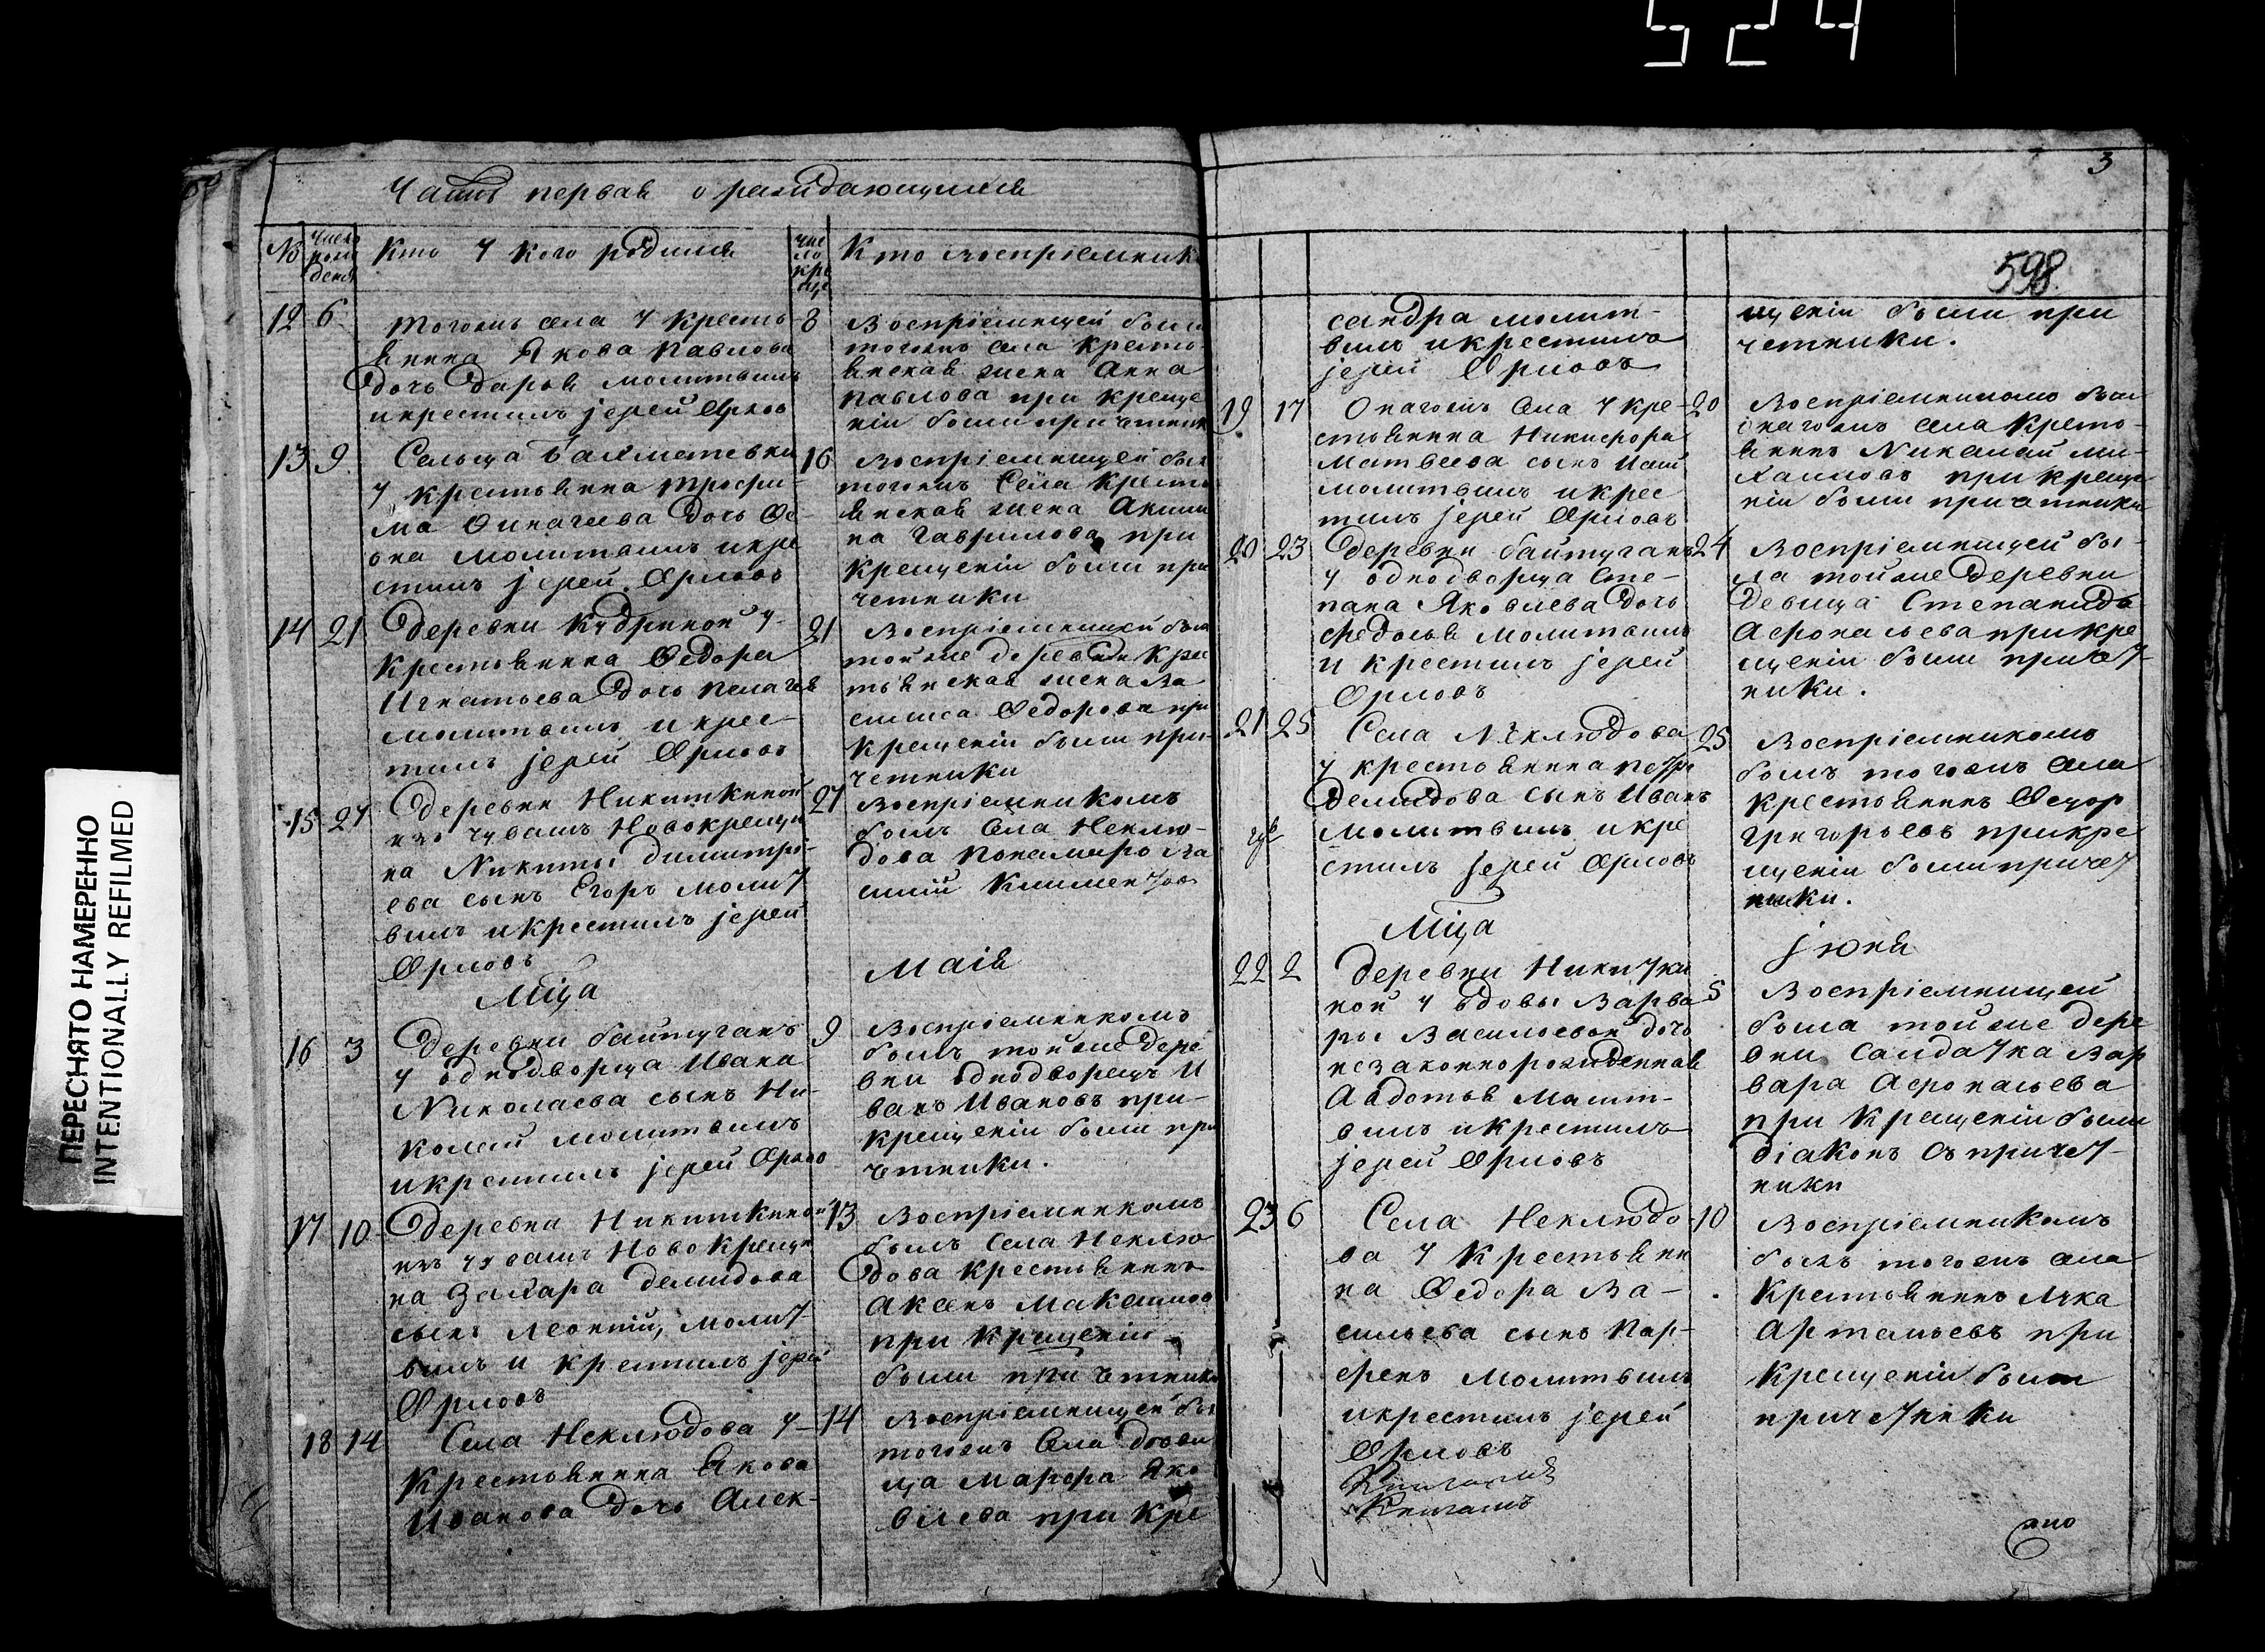 524
ПЕРЕСНЯТО НАМЕРЕННО
INTENTIONALLY REFILMED
Часть первая о раждающихся
№
число
рож
денія
Кто У кого родился
чис
ло
кре
ще
Кто воспріемники
12 6
тогожъ села У кресть
янина Якова Павлова
дочь Дарья молитвилъ
икрестилъ јерей Орлов
8
Воспріемницей была
тогожъ села кресть
янская жена Анна
Павлова при креще
ніи были причетник
13 9
Сельца Бахметевки
У крестьянина Трофи-
ма дочь
молитвилъ икре
стилъ јерей Орловъ
16
Воспріемницей был
тогожъ Села Кресть
янская жена Акили
на Гаврилова при
крещеніи были при
четники
14 21
Деревни Кудриной У
крестьянина Федора
Игнатьева дочь Пелагея
молитвилъ икрес-
тилъ јерей Орловъ
21
Воспріемницей была
тойже деревни Крес
тьянская жена Ва
силиса Федорова при
крещеніи были при-
четники
15 27
Деревни Никиткиной
изъ чувашъ Новокреще
на Никиты Димитри-
ева сынъ Егоръ Молит
вилъ икрестилъ јерей
Орловъ
27
Воспріемникомъ
былъ Села Неклю-
дова пономаръ Ва
силій Климентов
Мѣца
Маія
16 3
Деревни байтуганъ
У однодворца Ивана
Николаева сынъ Ни-
колай молитвилъ
икрестилъ јерей Орлов
9
Воспріемникомъ
былъ тойже дере
вни однодворецъ И
ванъ Ивановъ при-
крещеніи были при
четники.
17 10
Деревни Никиткиной
изъ чувашъ Новокреще
на Захара Демидова
сынъ Леонтій, Молит
вилъ и крестилъ јерей
Орловъ
13
Воспріемникомъ
былъ Села Неклю
дова крестьянинъ
Аксенъ Максимов
при крещеніи
были причетник
18 14
Села Неклюдова У
Крестьянина Якова
Иванова дочь Алек-
14
Воспріемницей был
тогожъ Села дѣви
ца Марфа Яко
влева при кре
3
598
сандра молит-
вилъ икрестилъ
јерей Орловъ
щеніи были при
четники.
19 17
Онагожъ Села У кре-
стьянина Никифора
Матвеева сынъ
молитвилъ икрес
тилъ јерей Орловъ
20
Воспріемникомъ был
онагожъ села Кресть-
янинъ Николай Ми-
хаиловъ при креще
ніи были причетники
20 23
Деревни байтуганъ
У однодворца Сте-
пана Яковлева дочь
Федосья молитвилъ
и крестилъ јерей
Орловъ
24
Воспріемницей бы-
ла тойже деревни
Девица Степанида
Афонасьева при кре
щеніи были причет-
ники.
21 25
Села Неклюдова
У крестьянина петра
Демидова сынъ Иванъ
Молитвилъ икре
стилъ јерей Орловъ
25
Воспріемникомъ
былъ тогожъ села
крестьянинъ Федор
Григорьевъ прикре
щеніи были причет
ники.
Мѣца
јюня
22 2
Деревни Никитки
ной У вдовы Варва
ры Васильевой дочь
незаконнорожденная
Авдотья Молит-
вилъ икрестилъ
јерей Орловъ
5
Воспріемницей
была тойже дере
вни солдатка Вар
вара Афонасьева
при Крещеніи были
діаконъ съ причет-
ники
23 6
Села Неклюдо-
ва У Крестьяни
на Федора Ва-
сильева сынъ Пар-
фенъ Молитвилъ
икрестилъ јерей
Орловъ
10
Воспріемникомъ
былъ тогожъ села
Крестьянинъ Лука
Артемьевъ при
Крещеніи были
причетники